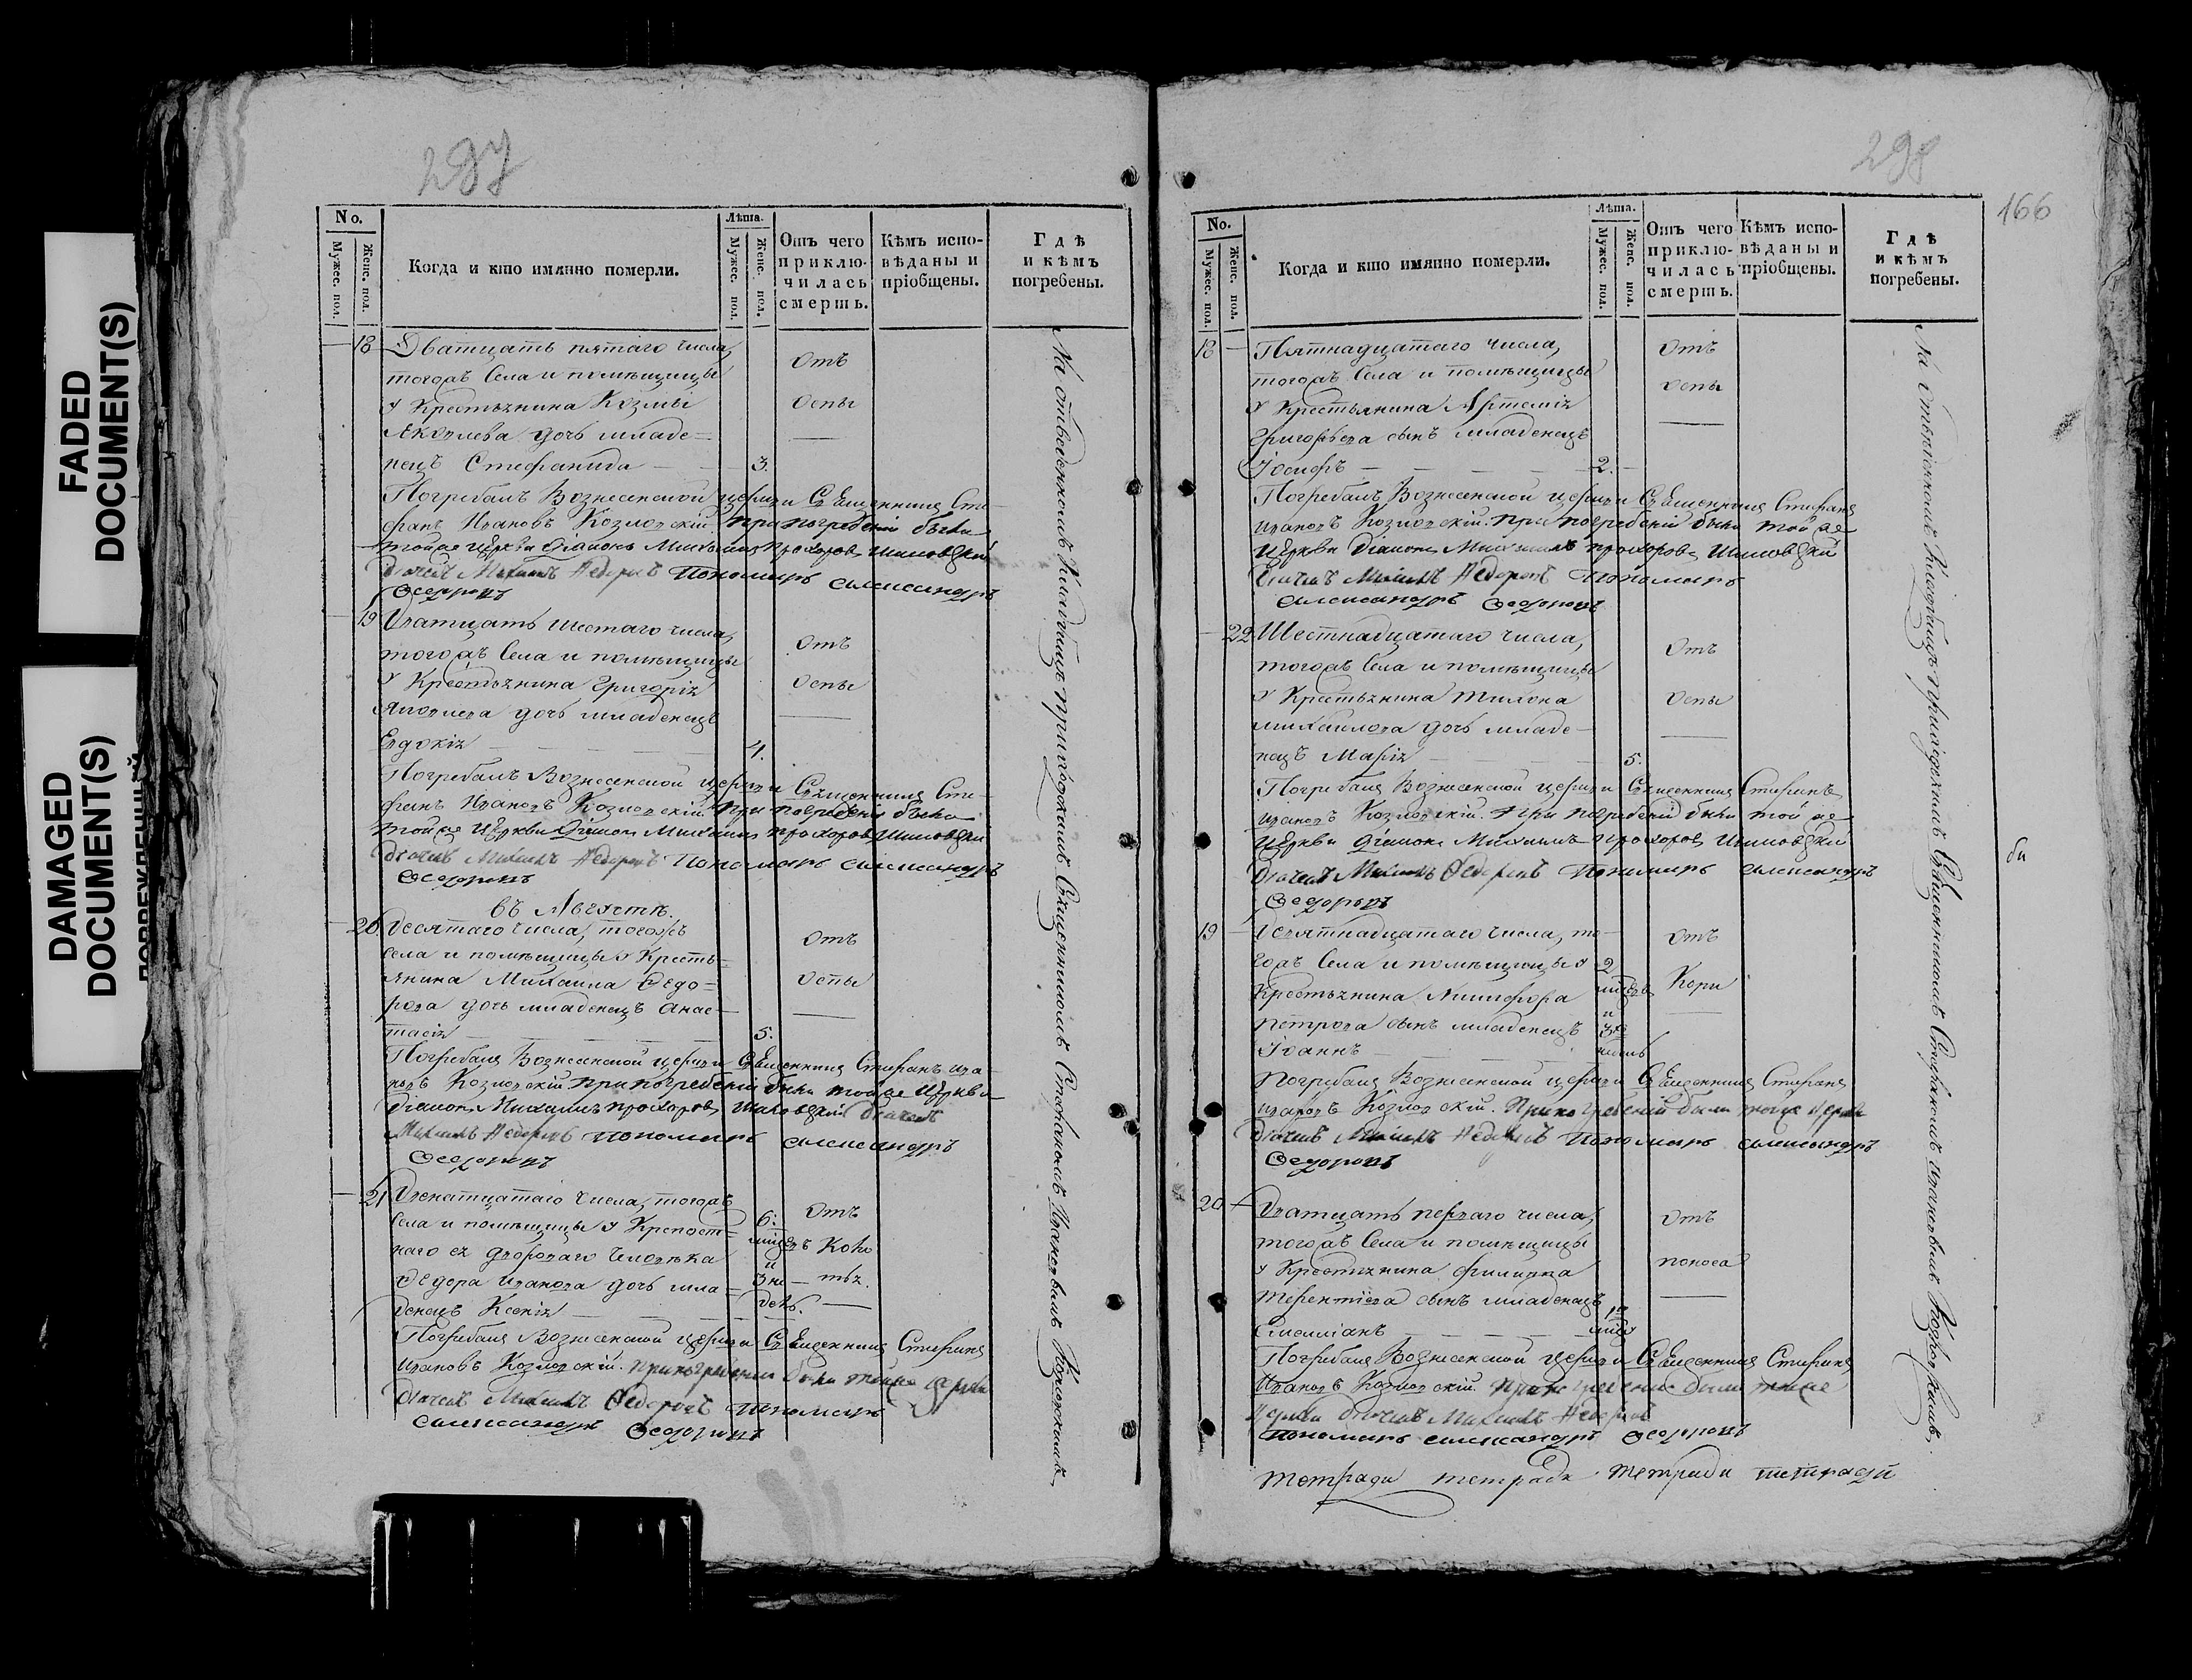 FADED
DOCUMENT(S)
DAMAGED
DOCUMENT(S)
ПОВРЕЖДЕННЫЙ
297
No.
Мужес. пол.
Женс. пол.
Когда и кто имянно померли.
Лѣта.
Мужес. пол.
Женс. пол.
Отъ чего
приклю-
чилась
смерть.
Кѣмъ испо-
вѣданы и
пріобщены.
Гдѣ
и кѣмъ
погребены.
18 Дватцать пятаго числа,
тогожъ Села и помѣщицы
у Крестьянина Козмы
Яковлева дочь младе=
нецъ Стефанида 3.
Отъ
Оспы
Погребалъ Вознесенской церкви Священникъ Сте-
фанъ Ивановъ Козловскій. При погребеніи были
тойже Церкви Діаконъ Михаилъ Прохоровъ
Дьячекъ Михаилъ Федоровъ Пономарь Александръ
Федоровъ
19 Дватцать шестаго числа,
тогожъ Села и помѣщицы
у Крестьянина Григорія
Яковлева дочь младенецъ
Евдокія 4.
Отъ
Оспы
Погребалъ Вознесенской церкви Священникъ Сте-
фанъ Ивановъ Козловскій. При погребеніи были
тойже Церкви Діаконъ Михаилъ Прохоровъ
Дьячекъ Михаилъ Федоровъ Пономарь Александръ
Федоровъ
въ Августѣ.
20 Десятаго числа, тогожъ
Села и помѣщицы у Кресть=
янина Михаила Федо=
рова дочь младенецъ Анас-
тасія 5.
Отъ
Оспы
Погребалъ Вознесенской церкви Священникъ Стефанъ Ива-
новъ Козловскій. При погребеніи были тойже Церкви
Діаконъ Михаилъ Прохоровъ Дьячекъ
Михаилъ Федоровъ Пономарь Александръ
Федоровъ
21 Двенатцатаго числа, тогожъ
Села и помѣщицы у Крепост=
наго ея двороваго человѣка
Федора Иванова дочь мла=
денецъ Ксенія
6.
и
3 не-
дель.
Отъ
Погребалъ Вознесенской церкви Священникъ Стефанъ
Ивановъ Козловскій. При погребеніи были тойже Церкви
Дьячекъ Михаилъ Федоровъ Пономарь
Александръ Федоровъ
На отведенномъ Кладбищѣ приходскимъ Священникомъ Стефаномъ Ивановымъ Козловскимъ.
298
166
No.
Мужес. пол.
Женс. пол.
Когда и кто имянно померли.
Лѣта.
Мужес. пол.
Женс. пол.
Отъ чего
приклю-
чилась
смерть.
Кѣмъ испо-
вѣданы и
пріобщены.
Гдѣ
и кѣмъ
погребены.
18 Пятнадцатаго числа,
тогожъ Села и помѣщицы
у Крестьянина Артемія
Григорьева сынъ младенецъ
Іосифъ 2.
Отъ
оспы
Погребалъ Вознесенской церкви Священникъ Стефанъ
Ивановъ Козловскій. При погребеніи были тойже
Церкви Діаконъ Михаилъ Прохоровъ
Дьячекъ Михаилъ Федоровъ Пономарь
Александръ Федоровъ
22 Шестнадцатаго числа,
тогожъ Села и помѣщицы
у Крестьянина
Михайлова дочь младе-
нецъ Марія 5.
Отъ
Оспы
Погребалъ Вознесенской церкви Священникъ Стефанъ
Ивановъ Козловскій. При погребеніи были тойже
Церкви Діаконъ Михаилъ Прохоровъ
Дьячекъ Михаилъ Федоровъ Пономарь Александръ
Федоровъ
19 Девятнадцатаго числа, то-
гожъ Села и помѣщицы у
Крестьянина Никифора
Петрова сынъ младенецъ
Іоаннъ
2
и
Отъ
Кори
Погребалъ Вознесенской церкви Священникъ Стефанъ
Ивановъ Козловскій. При погребеніи были тойже Церкви
Дьячекъ Михаилъ Федоровъ Пономарь Александръ
Федоровъ
20 Дватцать перваго числа,
тогожъ Села и помѣщицы
у Крестьянина Филиппа
Терентіева сынъ младенецъ
Отъ
поноса
Погребалъ Вознесенской церкви Священникъ Стефанъ
Ивановъ Козловскій. При погребеніи были тойже
Церкви Дьячекъ Михаилъ Федоровъ
Пономарь Александръ Федоровъ
Тетради тетрадь тетради тетради